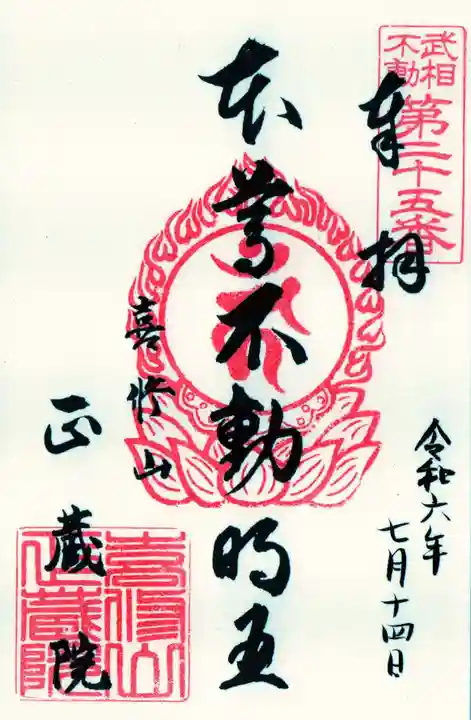 武相
不動
第二十五番
奉拝
本尊不動明王
喜修山
正蔵院
令和六年
七月十四日
喜修山
正蔵院